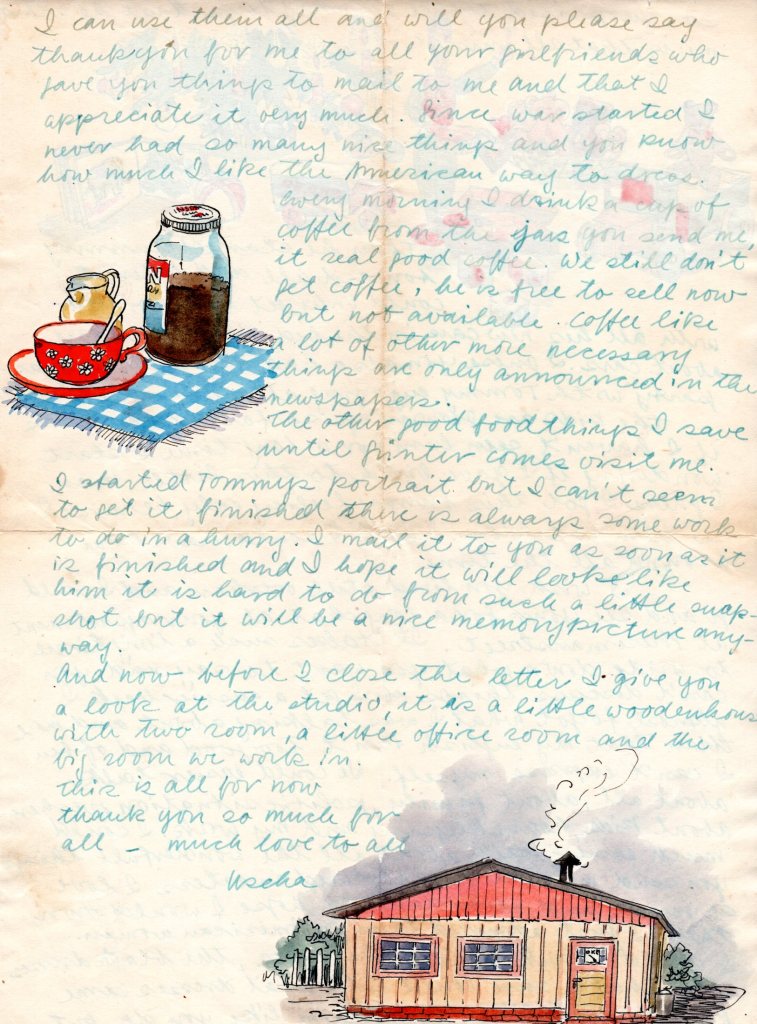 I can use them all and will you please say
thankyou for me to all your girlfriends who
gave you things to mail to me and that I
appreciate it very much. Since war started I
never had so many nice things and you know
how much I like the American way to dress.
Every morning I drink a cup of
coffee from the jars you send me,
it real good coffee. We still don't
get coffee, he is free to sell now
but not available. Coffee like
a lot of other more necessary
things are only announced in the
newspapers.
The other good foodthings I save
until Günter comes visit me.
I started Tommys portrait but I can't seem
to get it finished there is always some work
to do in a hurry. I mail it to you as soon as it
is finished and I hope it will looke like
him it is hard to do from such a little snap-
shot but it will be a nice memorypicture any-
way.
And now before I close the letter I give you
a look at the studio, it is a little woodenhous
with two room, a little office room and the
big room we work in.
This is all for now
thank you so much for
all – much love to all
Uscha